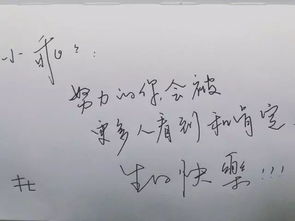 小乖：
努力的你会被
更多人看到和肯定
生日快乐!!!